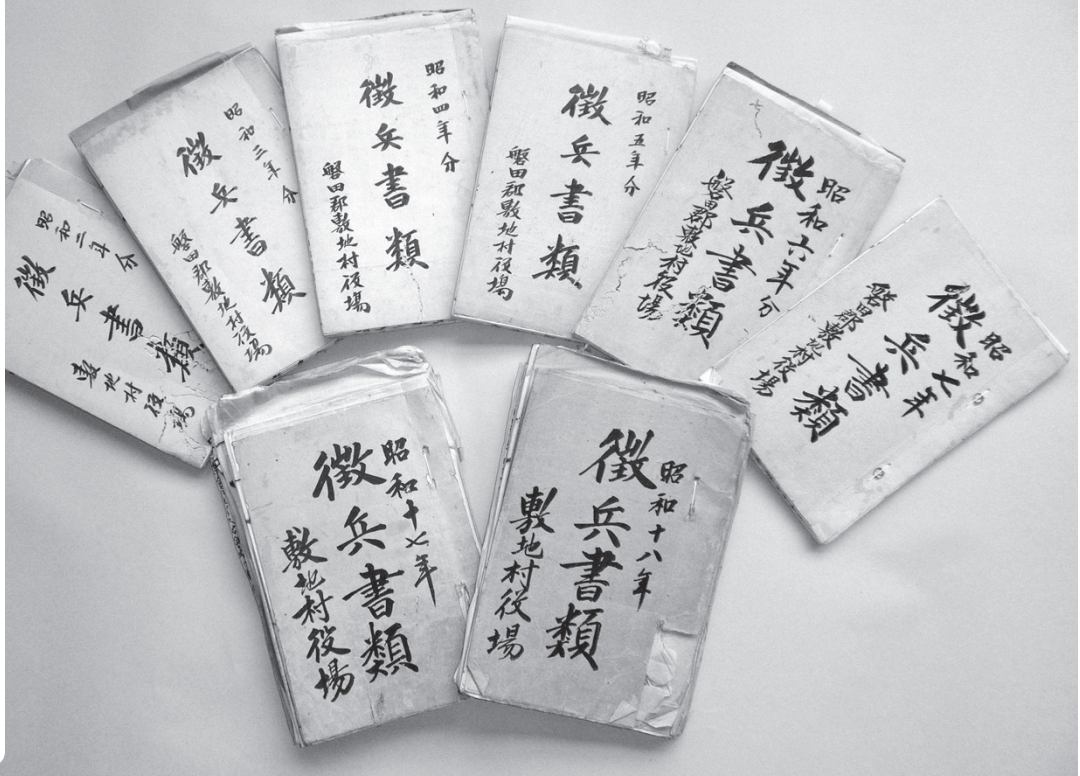 昭和二年分
徴兵書類
敷地村役場
昭和三年分
徴兵書類
磐田郡敷地村役場
昭和四年分
徴兵書類
磐田郡敷地村役場
昭和五年分
徴兵書類
磐田郡敷地村役場
昭和六年分
徴兵書類
磐田郡敷地村役場
昭和七年
徴兵書類
磐田郡敷地村役場
昭和十七年
徴兵書類
敷地村役場
昭和十八年
徴兵書類
敷地村役場